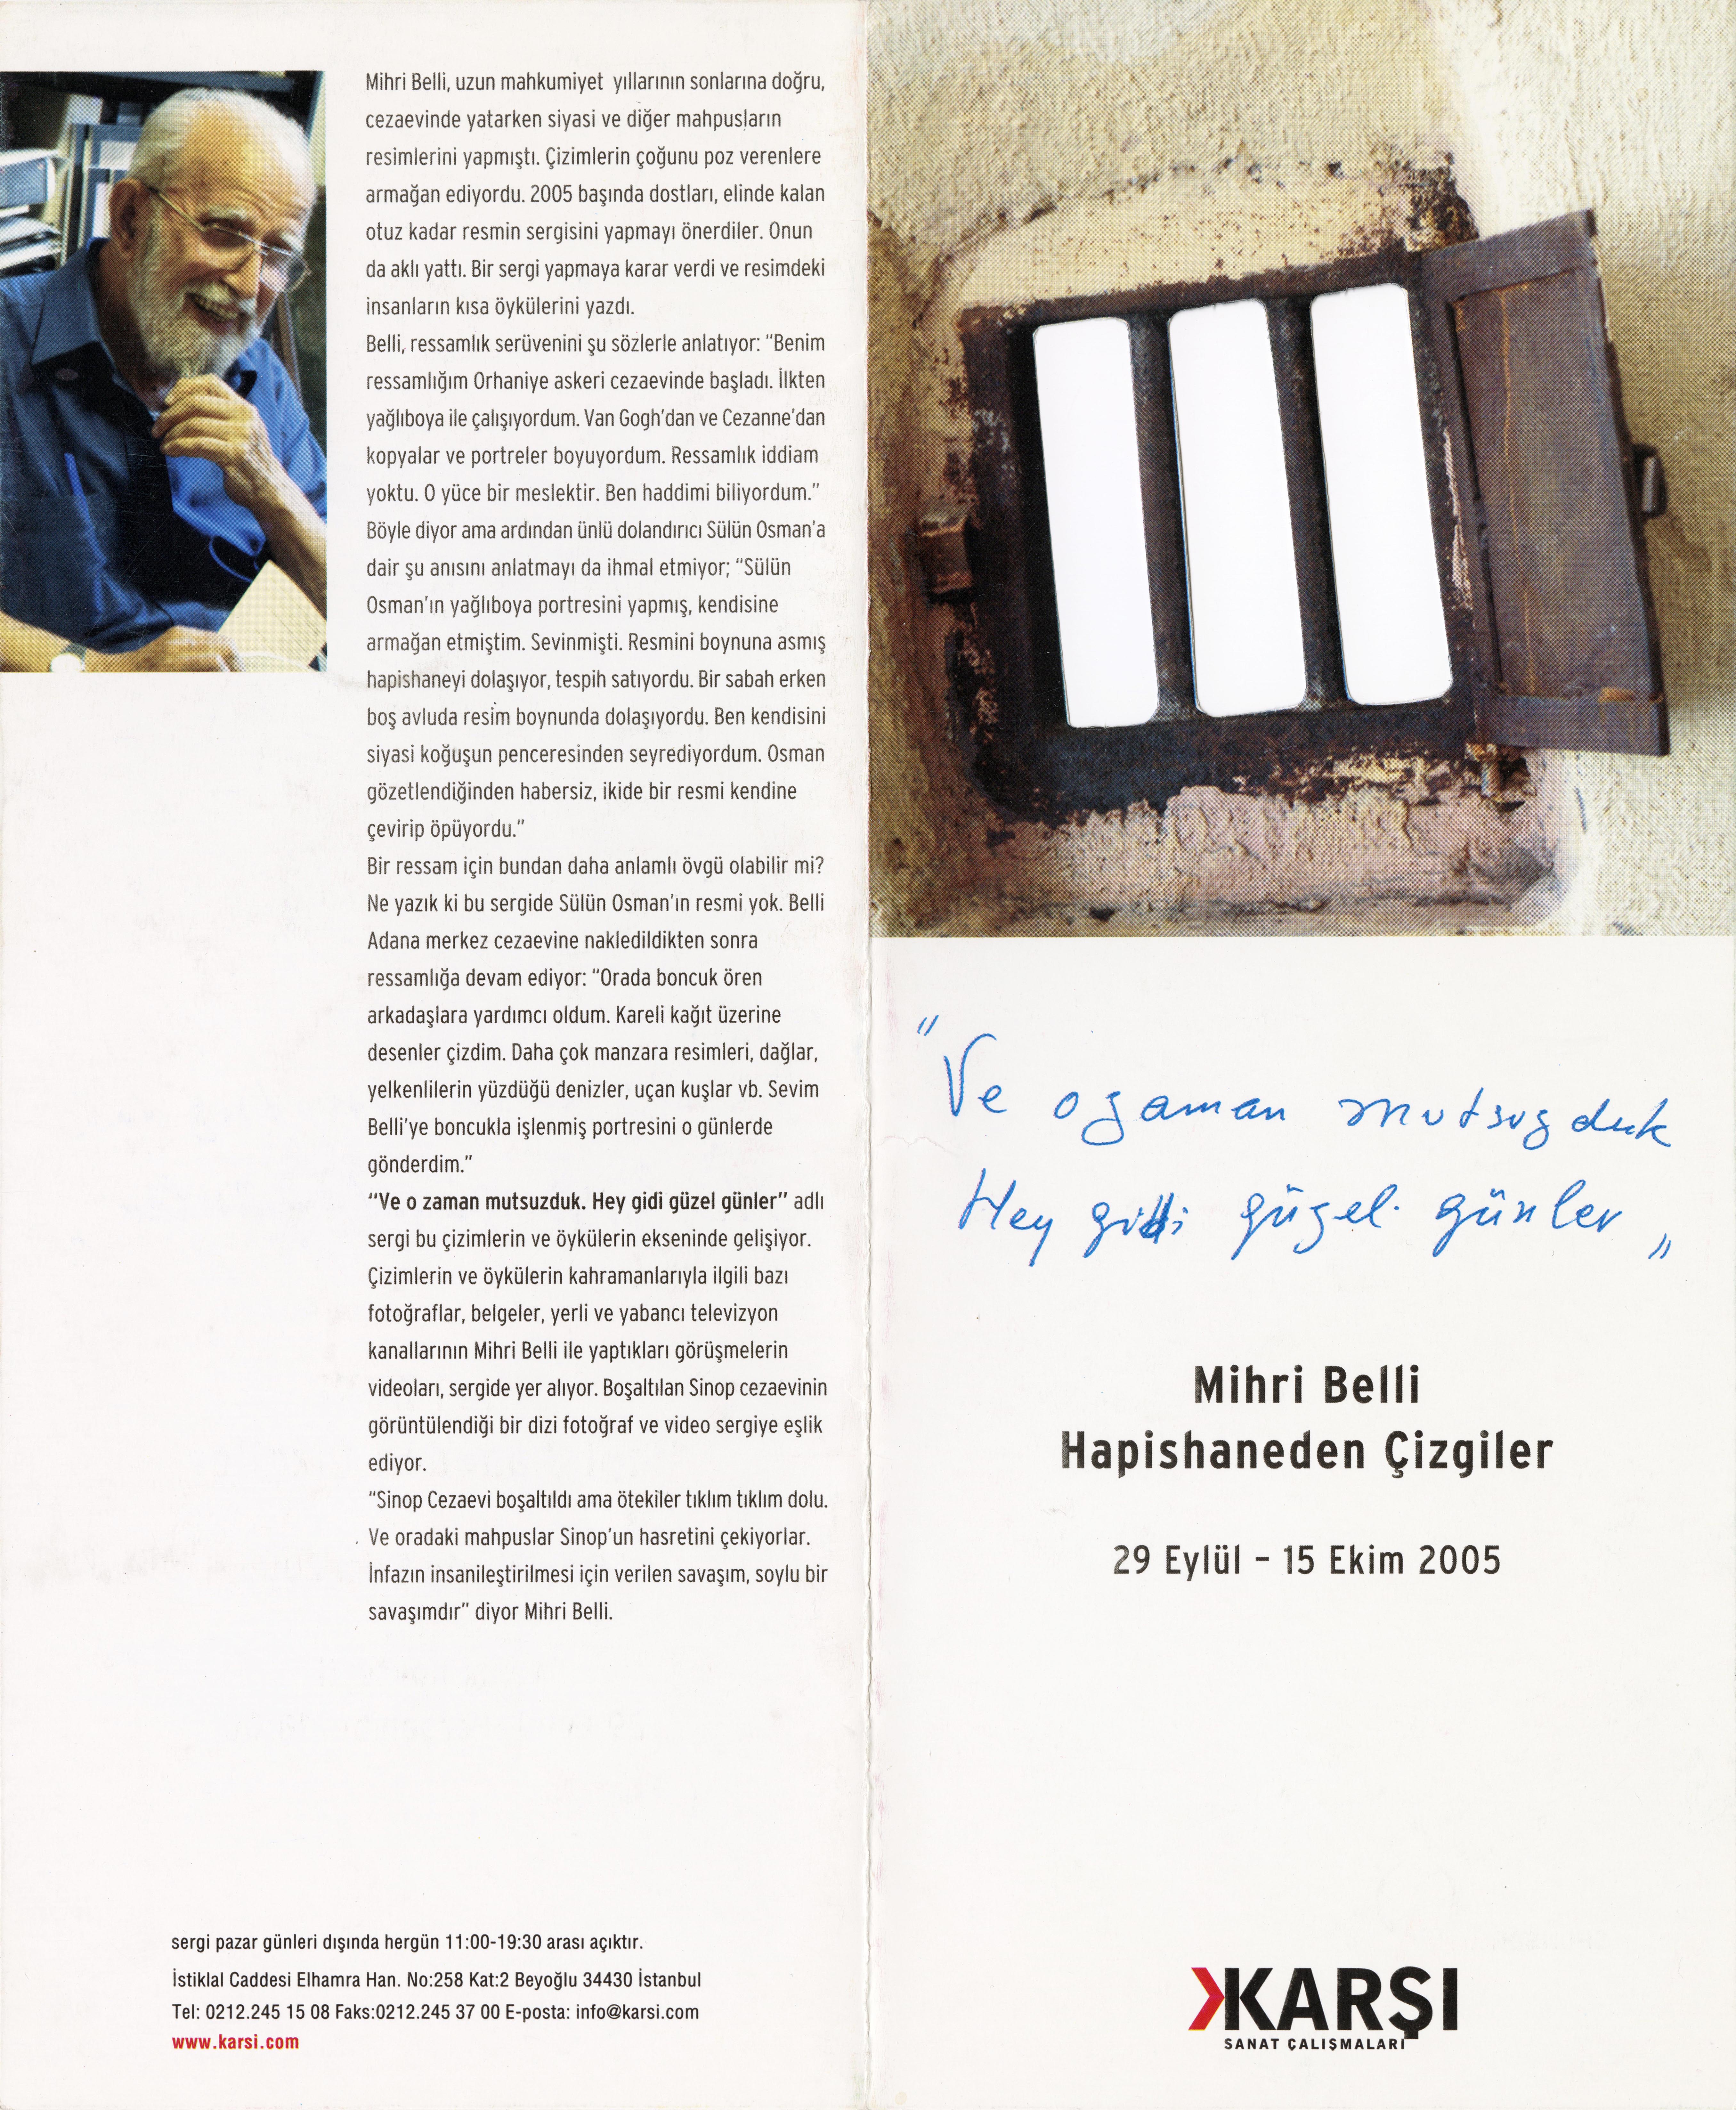 Mihri Belli, uzun mahkumiyet yıllarının sonlarına doğru,
cezaevinde yatarken siyasi ve diğer mahpusların
resimlerini yapmıştı. Çizimlerin çoğunu poz verenlere
armağan ediyordu. 2005 başında dostları, elinde kalan
otuz kadar resmin sergisini yapmayı önerdiler. Onun
da aklı yattı. Bir sergi yapmaya karar verdi ve resimdeki
insanların kısa öykülerini yazdı.
Belli, ressamlık serüvenini şu sözlerle anlatıyor: “Benim
ressamlığım Orhaniye askeri cezaevinde başladı. İlkten
yağlıboya ile çalışıyordum. Van Gogh’dan ve Cezanne’dan
kopyalar ve portreler boyuyordum. Ressamlık iddiam
yoktu. O yüce bir meslektir. Ben haddimi biliyordum.”
Böyle diyor ama ardından ünlü dolandırıcı Sülün Osman’a
dair şu anısını anlatmayı da ihmal etmiyor; “Sülün
Osman’ın yağlıboya portresini yapmış, kendisine
armağan etmiştim. Sevinmişti. Resmini boynuna asmış
hapishaneyi dolaşıyor, tespih satıyordu. Bir sabah erken
boş avluda resim boynunda dolaşıyordu. Ben kendisini
siyasi koğuşun penceresinden seyrediyordum. Osman
gözetlendiğinden habersiz, ikide bir resmi kendine
çevirip öpüyordu.”
Bir ressam için bundan daha anlamlı övgü olabilir mi?
Ne yazık ki bu sergide Sülün Osman’ın resmi yok. Belli
Adana merkez cezaevine nakledildikten sonra
ressamlığa devam ediyor: “Orada boncuk ören
arkadaşlara yardımcı oldum. Kareli kağıt üzerine
desenler çizdim. Daha çok manzara resimleri, dağlar,
yelkenlilerin yüzdüğü denizler, uçan kuşlar vb. Sevim
Belli’ye boncukla işlenmiş portresini o günlerde
gönderdim.”
“Ve o zaman mutsuzduk. Hey gidi güzel günler” adlı
sergi bu çizimlerin ve öykülerin ekseninde gelişiyor.
Çizimlerin ve öykülerin kahramanlarıyla ilgili bazı
fotoğraflar, belgeler, yerli ve yabancı televizyon
kanallarının Mihri Belli ile yaptıkları görüşmelerin
videoları, sergide yer alıyor. Boşaltılan Sinop cezaevinin
görüntülendiği bir dizi fotoğraf ve video sergiye eşlik
ediyor.
“Sinop Cezaevi boşaltıldı ama ötekiler tıklım tıklım dolu.
Ve oradaki mahpuslar Sinop’un hasretini çekiyorlar.
İnfazın insanileştirilmesi için verilen savaşım, soylu bir
savaşımdır” diyor Mihri Belli.
sergi pazar günleri dışında hergün 11:00-19:30 arası açıktır.
İstiklal Caddesi Elhamra Han. No:258 Kat:2 Beyoğlu 34430 İstanbul
Tel: 0212.245 15 08 Faks:0212.245 37 00 E-posta: info@karsi.com
www.karsi.com
“Ve o zaman mutsuzduk
Hey gidi güzel günler”
Mihri Belli
Hapishaneden Çizgiler
29 Eylül – 15 Ekim 2005
KARŞI
SANAT ÇALIŞMALARI